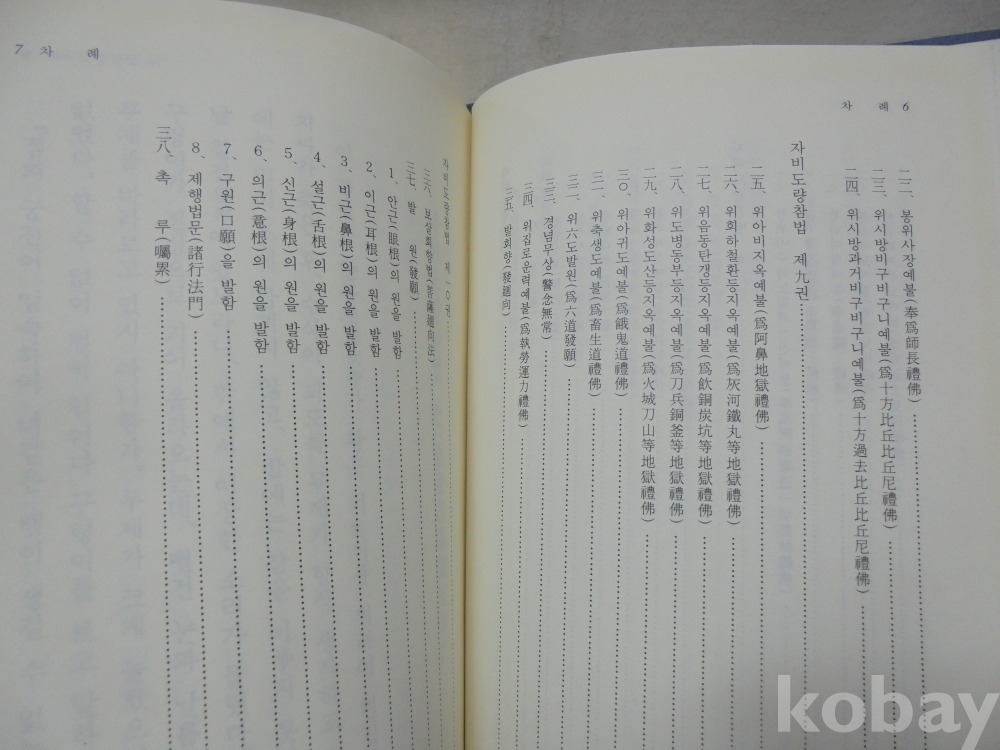 차 례 6
二二、봉위사장예불(奉爲師長禮佛)
二三、위시방비구비구니예불(爲十方比丘比丘尼禮佛)
二四、위시방과거비구비구니예불(爲十方過去比丘比丘尼禮佛)
자비도량참법 제九권
二五、위아비지옥예불(爲阿鼻地獄禮佛)
二六、위회하철환등지옥예불(爲灰河鐵丸等地獄禮佛)
二七、위음동탄갱등지옥예불(爲飮銅炭坑等地獄禮佛)
二八、위도병동부등지옥예불(爲刀兵銅釜等地獄禮佛)
二九、위화성도산등지옥예불(爲火城刀山等地獄禮佛)
三○、위아귀도예불(爲餓鬼道禮佛)
三一、위축생도예불(爲畜生道禮佛)
三二、위六도발원(爲六道發願)
三三、경념무상(警念無常)
三四、위집로운력예불(爲執勞運力禮佛)
三五、발회향(發廻向)
7 차 례
자비도량참법 제一○권
三六、보살회향법(菩薩廻向法)
三七、발 원(發願)
1、안근(眼根)의 원을 발함
2、이근(耳根)의 원을 발함
3、비근(鼻根)의 원을 발함
4、설근(舌根)의 원을 발함
5、신근(身根)의 원을 발함
6、의근(意根)의 원을 발함
7、구원(口願)을 발함
8、제행법문(諸行法門)
三八、촉 루(囑累)
kobay